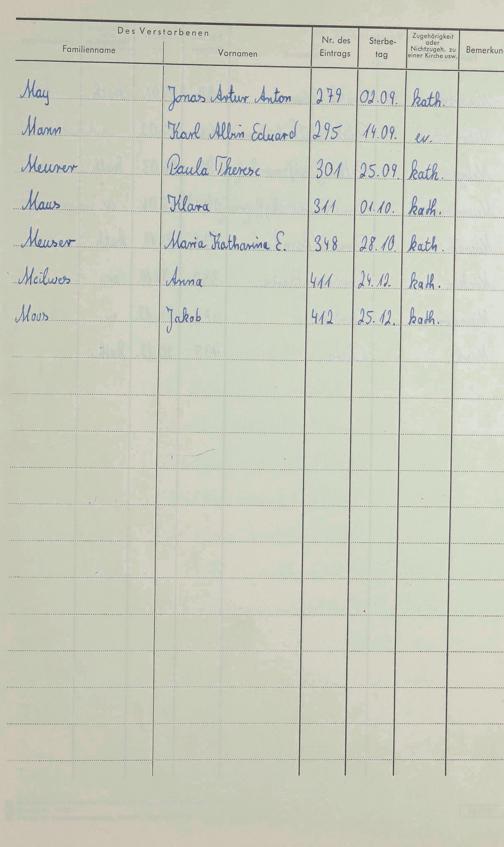 Des Verstorbenen
Familienname Vornamen Nr. des Eintrags Sterbe-tag Zugehörigkeit oder Nichtzugeh. zu einer Kirche usw. Bemerkun
May Jonas Artur Anton 279 02.09. kath.
Mann Karl Albin Eduard 295 14.09. ev.
Meurer Paula Therese 301 25.09. kath.
Maus Klara 311 01.10. kath.
Meuser Maria Katharina E. 348 28.10. kath.
Meilwes Anna 411 24.12. kath.
Moos Jakob 412 25.12. kath.